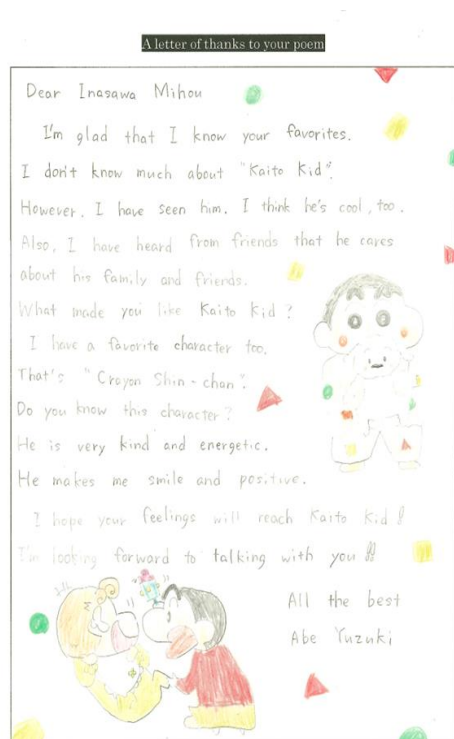 A letter of thanks to your poem
Dear Inasawa Mihou
I'm glad that I know your favorites.
I don't know much about "Kaito Kid".
However, I have seen him. I think he's cool, too.
Also, I have heard from friends that he cares
about his family and friends.
What made you like Kaito Kid?
I have a favorite character too.
That's "Crayon Shin-chan".
Do you know this character?
He is very kind and energetic.
He makes me smile and positive.
I hope your feelings will reach Kaito Kid!
I'm looking forward to talking with you!!
All the best
Abe Yuzuki